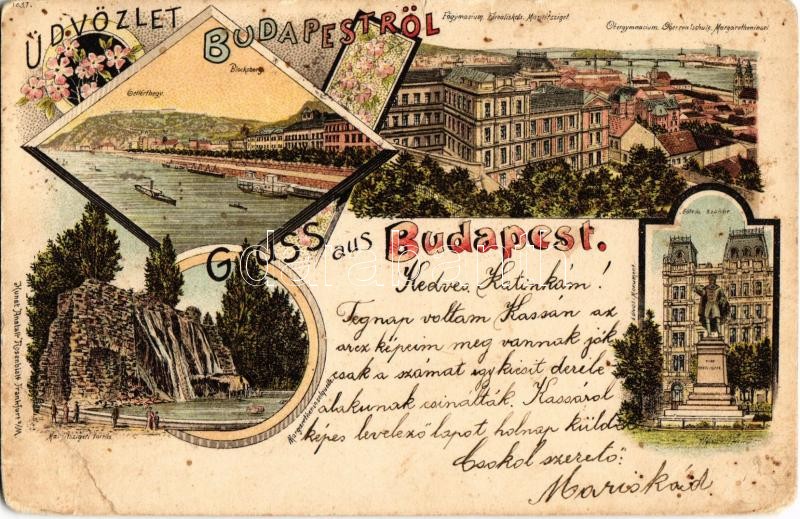 1037.
ÜDVÖZLET
BUDAPESTRŐL
Főgymnasium, Főreáliskola, Margitsziget
Obergymnasium, Oberrealschule, Margaretheninsel
Blocksberg
Gellérthegy
GRUSS aus Budapest.
darabanth
Kedves Katinkám!
Tegnap voltam Kassán az
arcz képeim meg vannak jók
csak a számat egy kicsit
alakunak csinálták. Kassáról
képes levelező lapot holnap küldök
Csokol szerető:
Mariskád.
Margitszigeti forrás
Margaretheninselquelle
Eötvös szobor
Eötvös Monument
Kunst Anstalt Rosenblatt Frankfurt a/M.